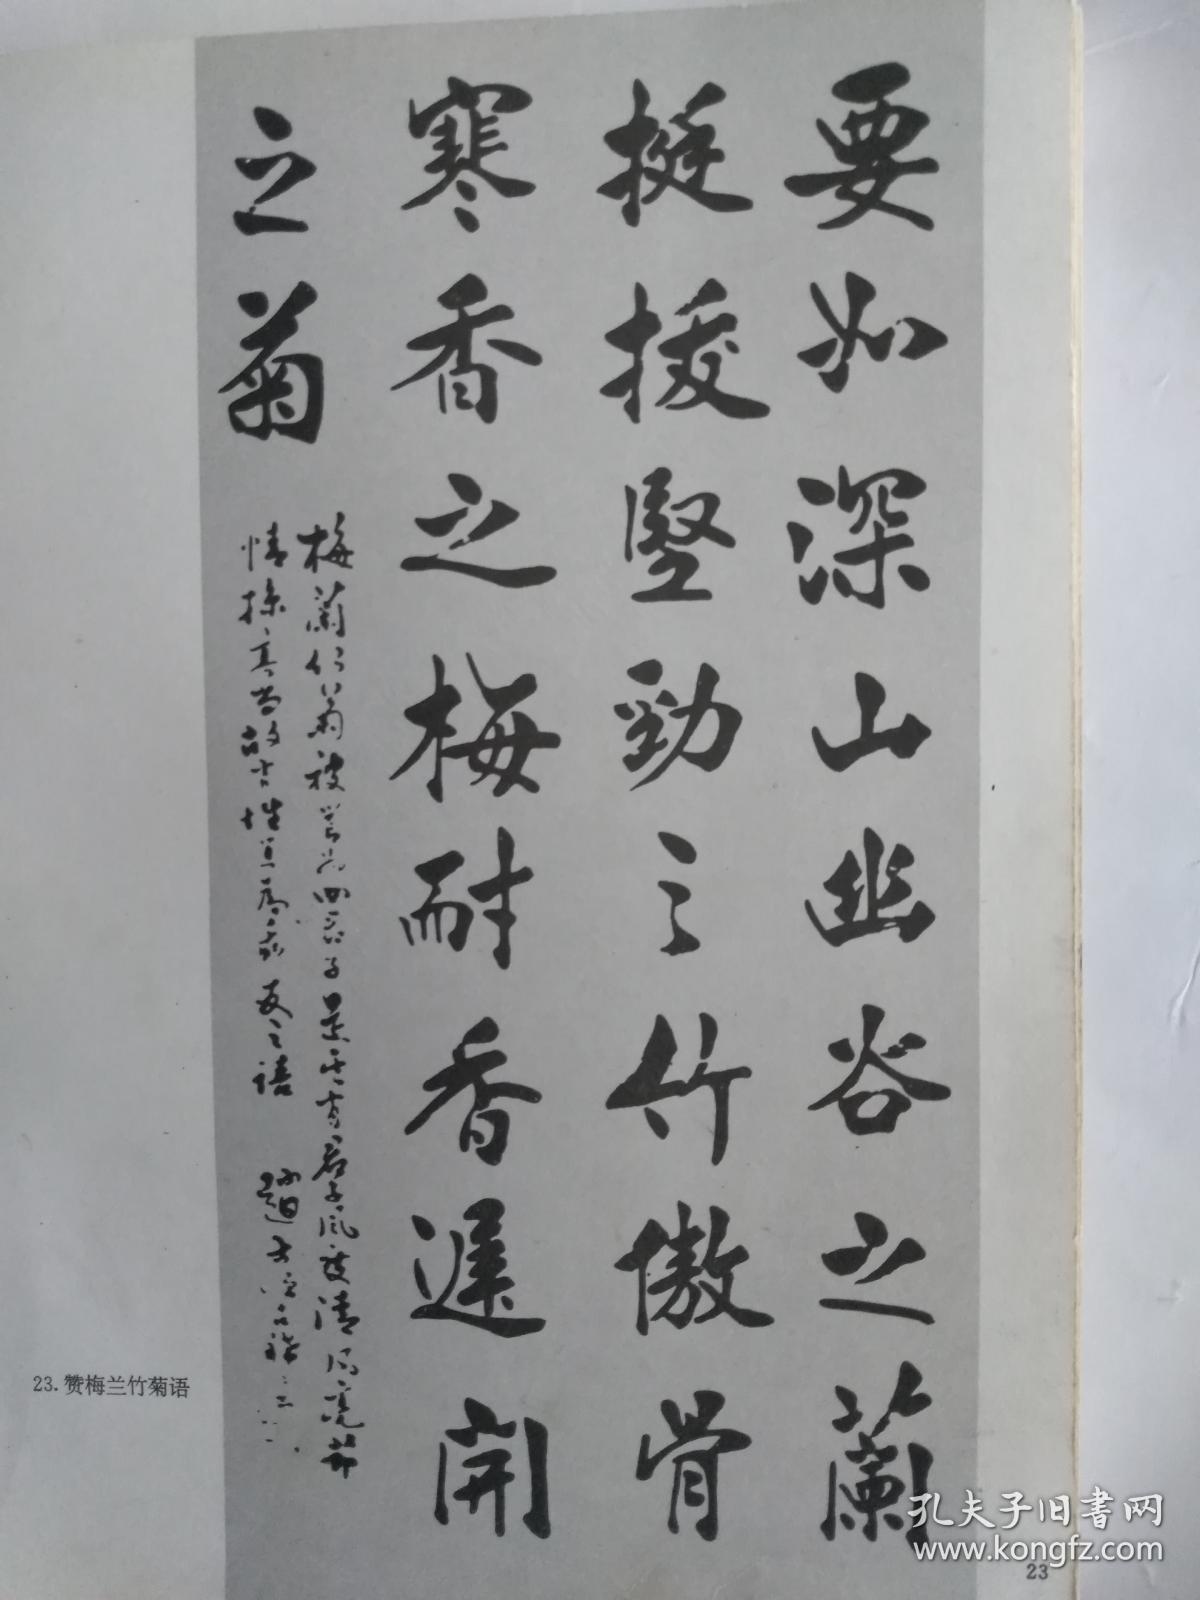 要如深山幽谷之蘭
挺拔堅勁之竹傲骨
寒香之梅耐香遲開
之菊
梅蘭竹菊被譽為四君子是其有君子風度清高亮節
情操高尚故古
之語
23.赞梅兰竹菊语
23
孔夫子旧书网
www.kongfz.com